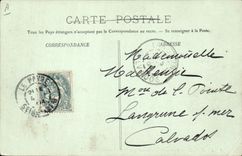 CARTE POSTALE
Tous les Pays étrangers n'acceptent pas la Correspondance au recto. — Se renseigner à la Poste.
CORRESPONDANCE
ADRESSE
Mademoiselle
Mackenzie
Mon de La Pointe
Langrune s/ mer
Calvados